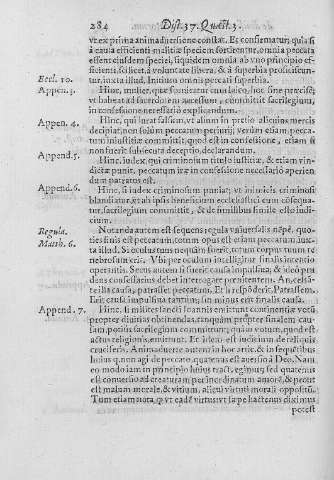 284 Dist. 37. Quæst. 3.
vt ex prima animaduersione constat. Et confirmatur, quia si
à causa efficienti malitiæ speciem sortirentur, omnia peccata
essent eiusdem speciei, siquidem omnia ab vno principio ef-
ficienti, scilicet à voluntate libera, & à superbia proficiscun-
tur, iuxta illud. Initium omnis peccati superbia.
Eccl. 10.
Appen. 3. Hinc, mulier, quæ fornicatur cum laico, hoc sine præcise,
vt habeat ad sacerdotem accessum, committit sacrilegium,
in confessione necessariò explicandum.
Appen. 4. Hinc, qui iurat falsum, vt alium in pretio alicuius mercis
decipiat, non solum peccatum periurij; verùm etiam pecca-
tum iniustitiæ committit, quod est in confessione, etiam si
non fuerit subsecuta deceptio, declarandum.
Append. 5. Hinc, iudex, qui criminosum titulo iustitiæ, & etiam vin-
dictæ punit, peccatum iræ in confessione necessariò aperien-
dum patratus est.
Append. 6. Hinc, si iudex criminosum puniat; vt inimicis criminosi
blandiatur, & ab ipsis beneficium ecclesiasticum conseque-
tur, sacrilegium committit, & de similibus simile esto indi-
cium.
Regula. Notanda autem est sequens regula vniuersalis nẽpè, quo-
ties finis est peccatum, totum opus est etiam peccatum, iux-
Matth. 6. ta illud. Si oculus tuus nequam fuerit, totum corpus tuum te-
nebrosum erit. Vbi per oculum intelligitur finalis intentio
operantis. Secus autem si fuerit causa impulsiua; & ideò pru-
dens confessarius debet interrogare pœnitentem. An, celsã-
te illa causa, patrasset peccatum. Et si respõderit. Patrassem.
Erit causa impulsiua tantùm; sin minus erit finalis causa.
Append. 7. Hinc, si milites sancti Ioannis omittunt continentiæ votũ
propter diuitias obtinendas, tanquàm propter finalem cau-
sam, potiùs sacrilegium committunt; quàm votum, quod est
actus religionis, emittunt. Et idem est iudicium de reliquis
cruciferis. Animaduerte autem in hoc artic. & in sequẽtibus
huius q. non agi de peccato, quatenus est auersio à Deo. Nam
eo modo iam in principio huius tract. egimus; sed quatenus
est conuersio ad creaturam per inordinatum amorẽ, & peccat
ut malum est, siue in genere moris, alicui virtuti morali oppositũ.
Tum etiam nota, quod eadẽ virtus vt sæpe hactenus diximus
potest